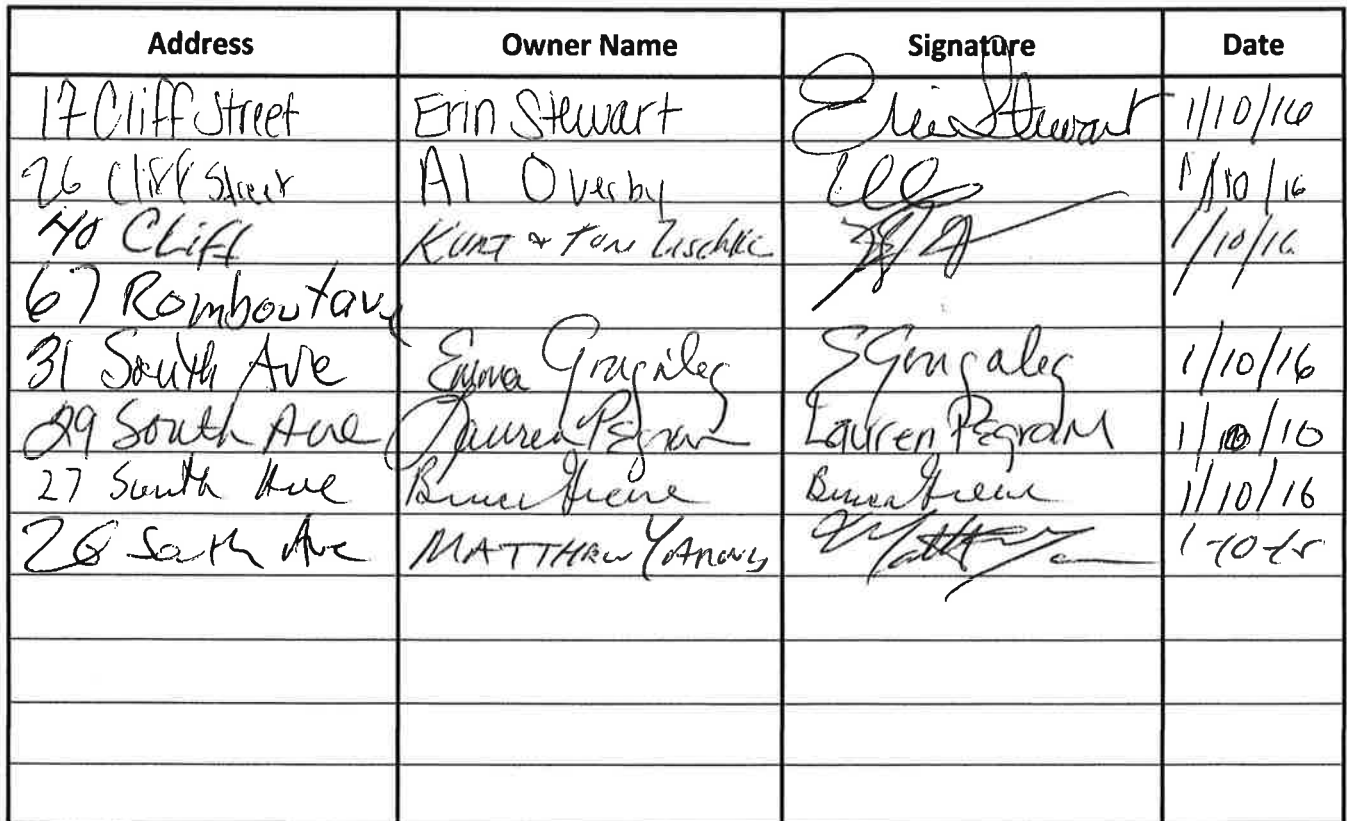 Address Owner Name Signature Date
17 Cliff Street Erin Stewart Erin Stewart 1/10/16
26 Cliff Street Al Overby 1/10/16
40 Cliff Kurt + 1/10/16
67 Rombout ave
31 South Ave Emma Gonzalez EGonzalez 1/10/16
29 South Ave Lauren Pegram Lauren Pegram 1/10/10
27 South Ave Bruce 1/10/16
26 South Ave Matthew